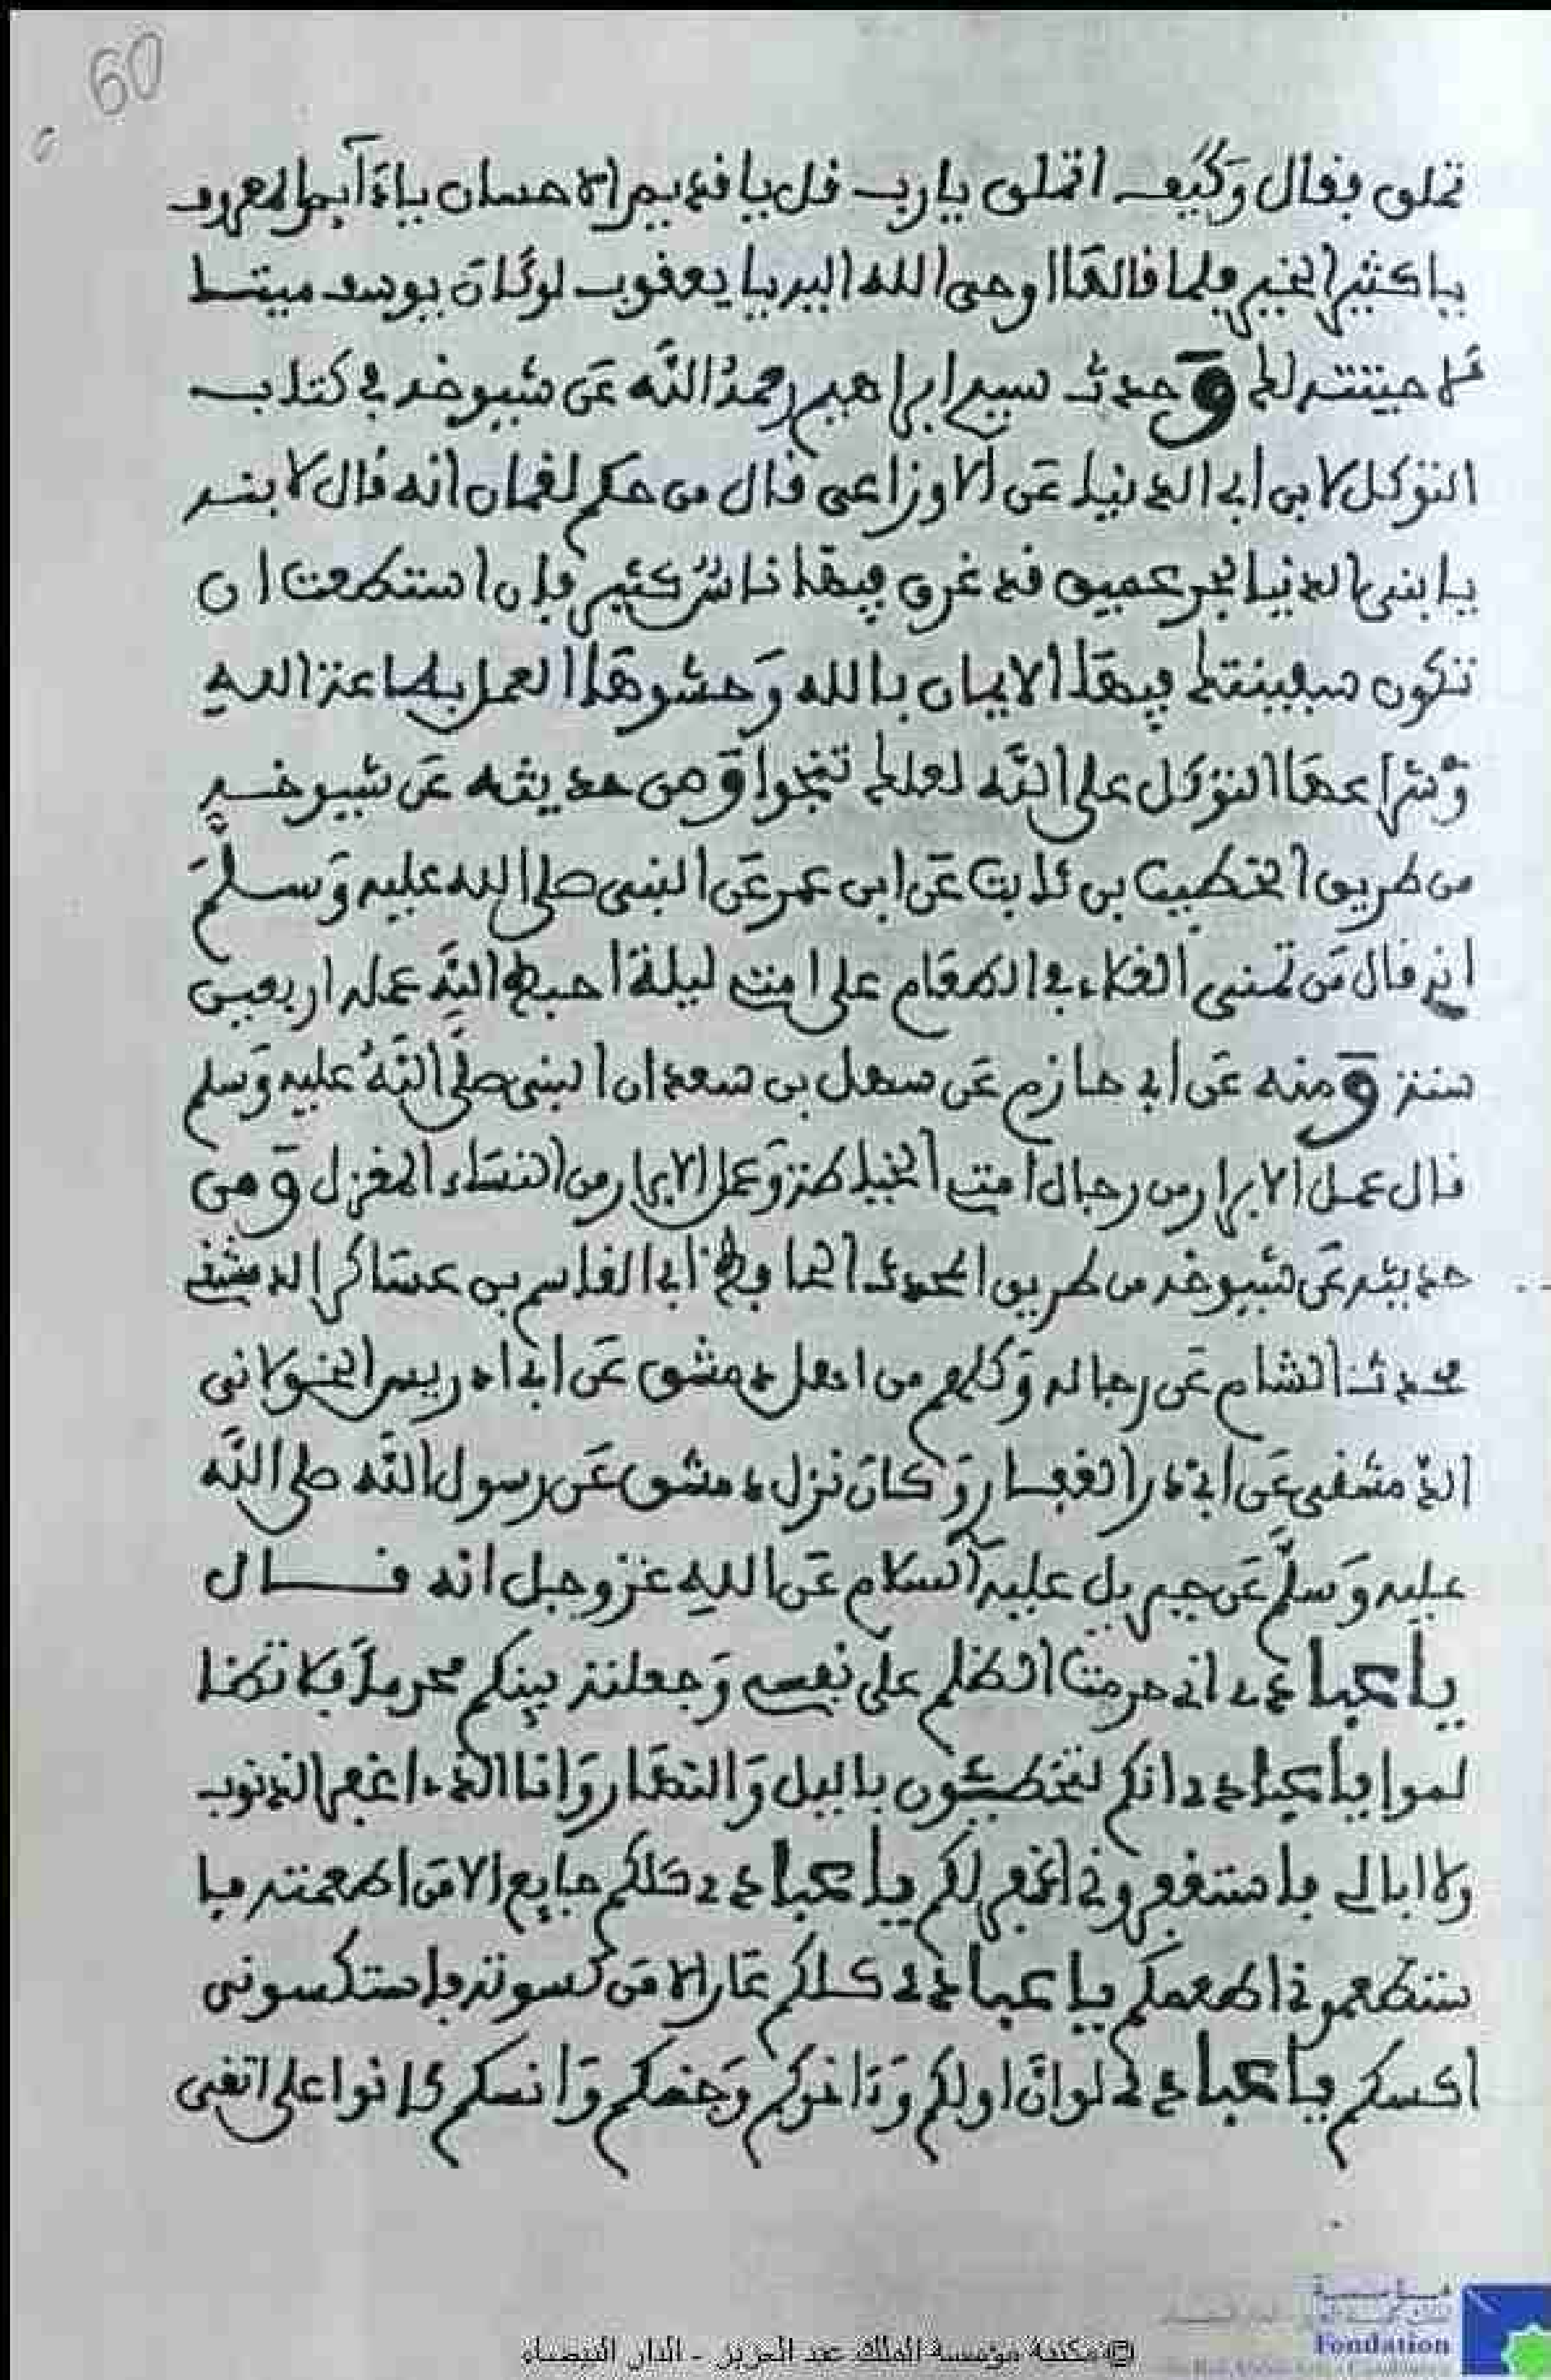 60
تملق فقال وكيف اتملق يا رب قل يا قديم الاحسان يا دآئم المعروف
يا كثير الخير فلما قالها اوحى الله اليه يا يعقوب لو كان يوسف ميتا
لاحييته لك وحدث سيدي ابراهيم رحمه الله عن شيوخه في كتاب
التوكل لابن ابي الدنيا عن الاوزاعي قال من حكم لقمان انه قال لابنه
يا بني الدنيا بحر عميق قد غرق فيها ناس كثير فإن استطعت ان
تكون سفينتك فيها الايمان بالله وحشوها العمل بطاعة الله
وشراعها التوكل على الله لعلك تنجوا ومن حديثه عن شيوخه
من طريق الخطيب بن ثابت عن ابن عمر عن النبي صلى الله عليه وسلم
انه قال من تمنى الغلاء في الطعام على امتي ليلة احبط الله عمله اربعين
سنة ومنه عن ابي حازم عن سهل بن سعد ان النبي صلى الله عليه وسلم
قال عمل الابرار من رجال امتي الخياطة وعمل الابرار من النساء المغزل ومن
حديثه عن شيوخه من طريق المحدث الحافظ ابي القاسم بن عساكر الدمشقي
محدث الشام عن رجاله وكلهم من اهل دمشق عن ابي ادريس الخولاني
الدمشقي عن ابي ذر الغفار وكان نزل دمشق عن رسول الله صلى الله
عليه وسلم عن جبريل عليه السلام عن الله عز وجل انه قال
يا عبادي اني حرمت الظلم على نفسي وجعلته بينكم محرما فلا تظا
لموا يا عبادي انكم لتخطئون باليل والنهار وانا الذي اغفر الذنوب
ولا ابالي فاستغفروني اغفر لكم يا عبادي كلكم جايع الا من اطعمته فا
ستطعموني اطعمكم يا عبادي كلكم عار الا من كسوته فاستكسوني
اكسكم يا عبادي لو ان اولكم وءاخركم وجنكم وانسكم كانوا على اتقى
© مكتبة مؤسسة الملك عبد العزيز - الدار البيضاء
Fondation